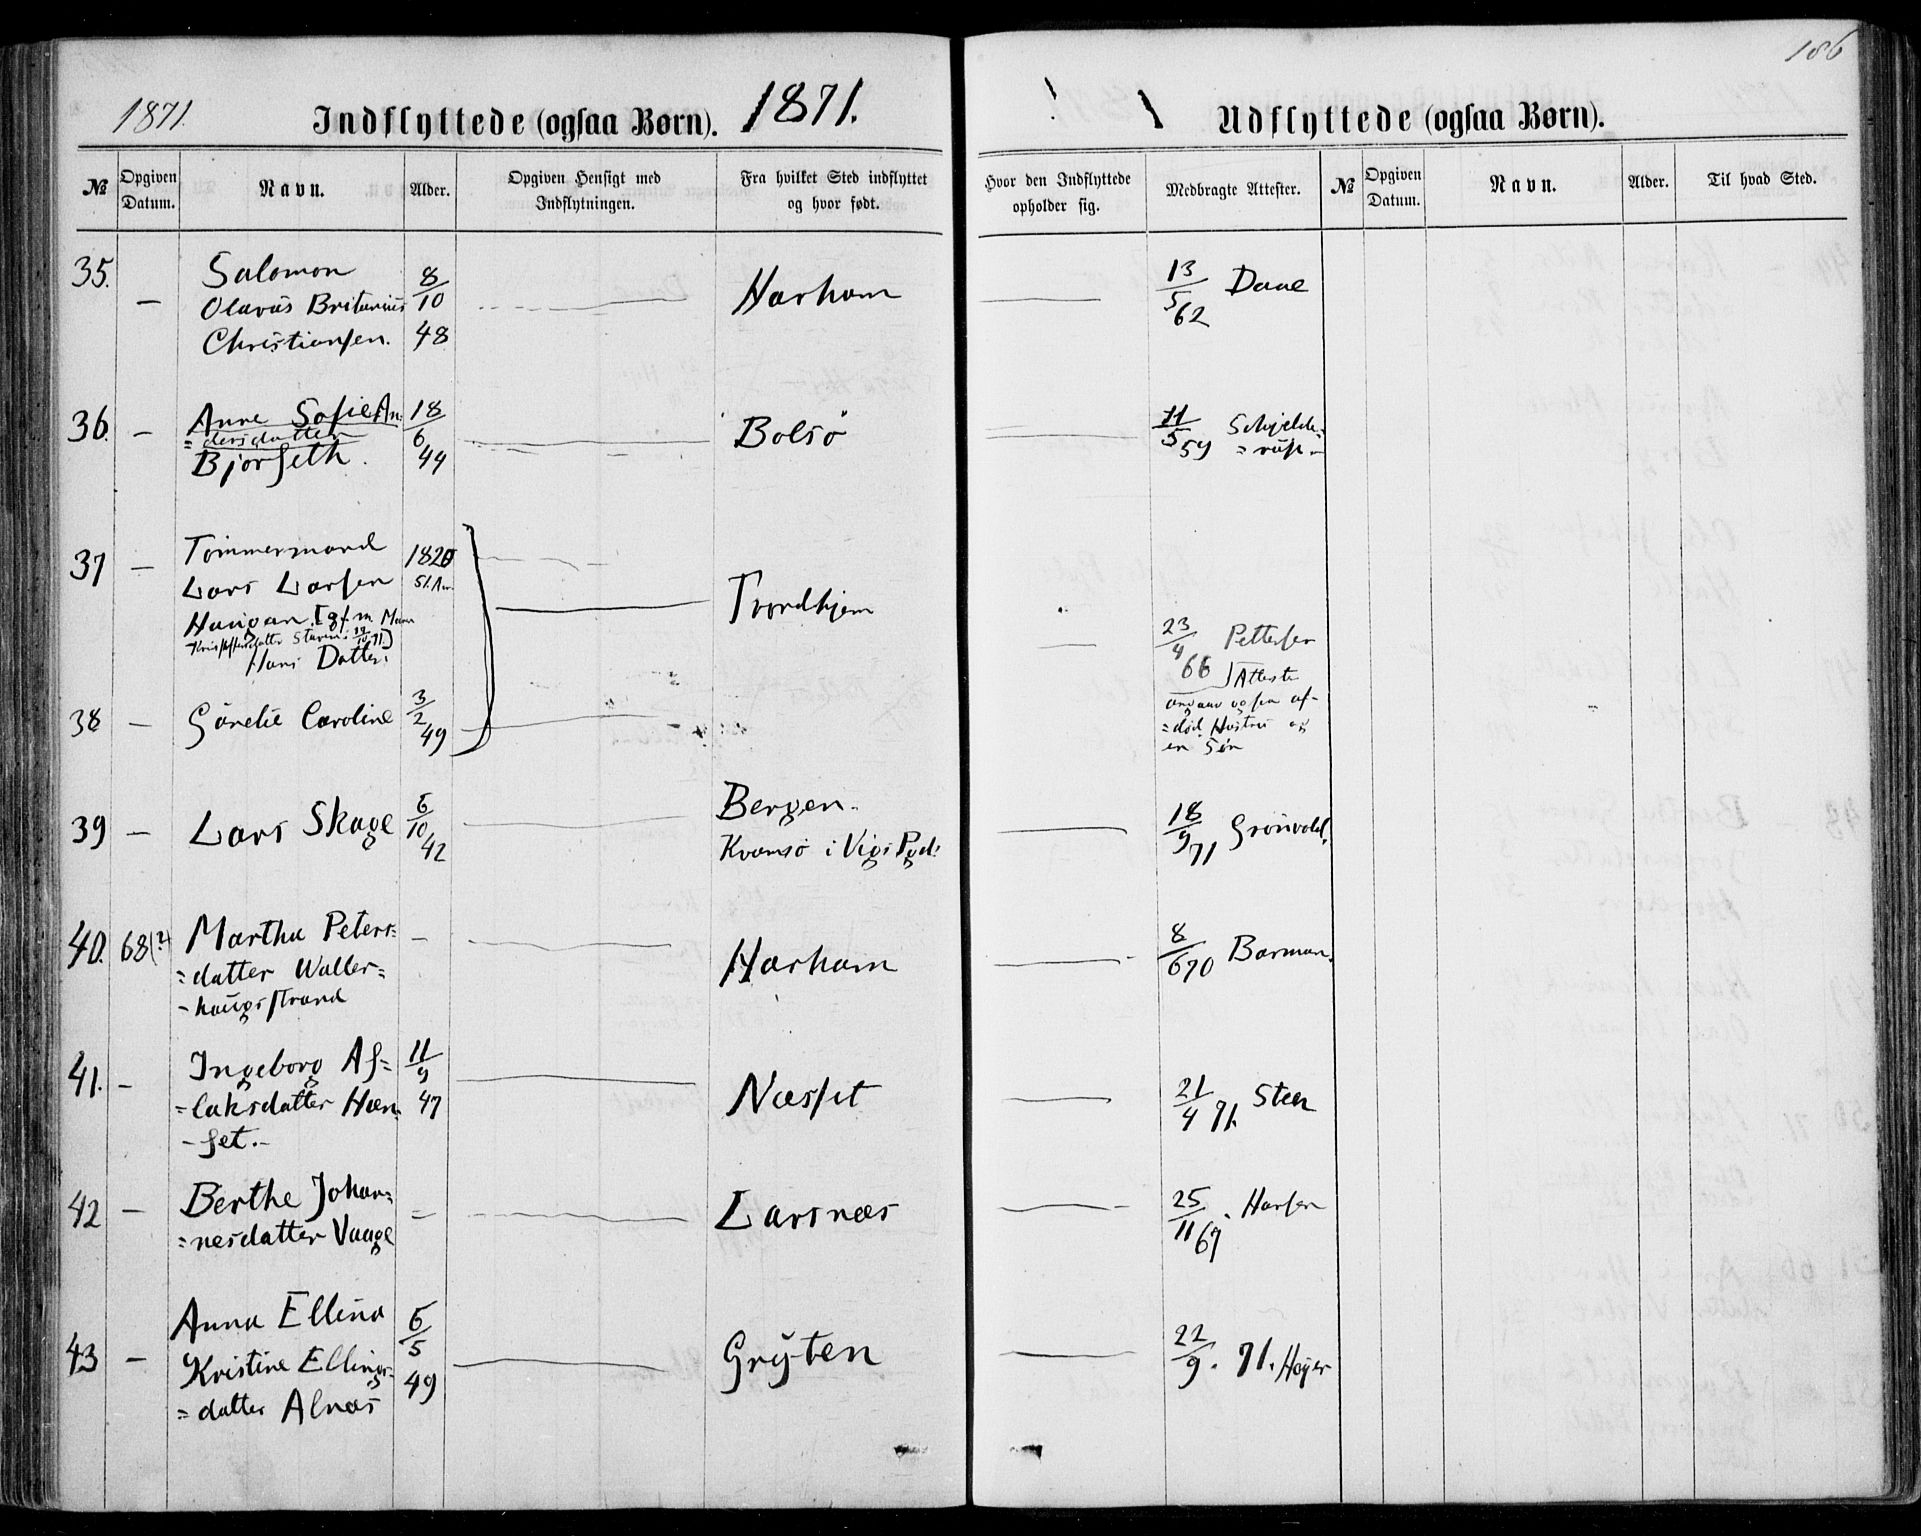 186
1871.
Indflyttede (ogsaa Børn).
1871.
Udflyttede (ogsaa Børn).
№ Opgiven Datum. Navn. Alder. Opgiven Hensigt med Indflytningen. Fra hvilket Sted indflyttet og hvor født. Hvor den Indflyttede opholder sig. Medbragte Attester. № Opgiven Datum. Navn. Alder. Til hvad Sted.
35. — Salomon 8/10 — Harham — 13/5 62 Daae
Olavus Britanius
Christiansen. 48
36. — Anne Sofie An= 18/6 — Bolsö — 11/5 59 Schjelde=
=dersdatter =rup
Bjorseth. 44
37 — Tömmermand 1820 — Trondhjem —
Lars Larsen 51 Aar
Haugan. [gf. m. Maren
Kristoffersdatter
Hans Datter: 23/4 66 Pettersen
38 — Caroline 3/2 49 — Attesten
angaar ogsaa af-
=död Hustru og
en Sön
39 — Lars Skage 6/10 42 — Bergen. — 18/9 71 Grönvold.
Kvamsö i Vigs Pgd:
40. 68(?) Martha Peters= — — Harham — 8/6 70 Barman.
=datter Waller=
-haugsstrand
41. — Ingeborg As= 11/9 — Næsset — 21/4 71. Steen
=laksdatter Hæn- 47
-set.-
42 — Berthe Johan= — — Larsnæs — 25/11 69. Hansen
=nesdatter Vaage
43 — Anna Ellina 6/5 — Gryten — 22/9. 71. Høyer
Kristine Ellings=
=datter Alnæs 49